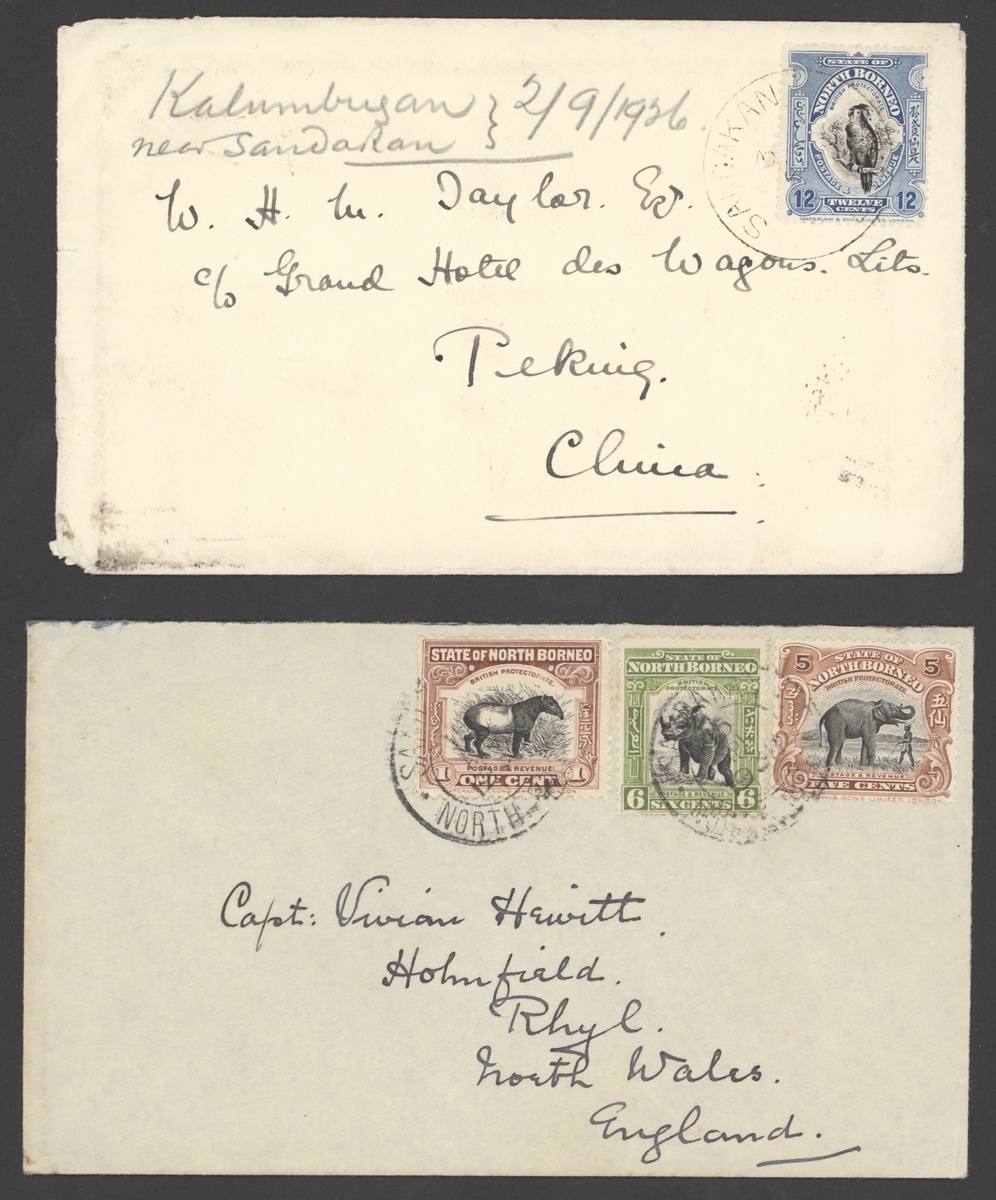 Kalumbugan } 2/9/1926.
near Sandakan
STATE OF
NORTH BORNEO
BRITISH PROTECTORATE
POSTAGE & REVENUE
12 TWELVE 12
CENTS
WATERLOW & SONS LIMITED, LONDON.
SANDAKAN
W. H. M. Taylor. Esq.
c/o Grand Hotel des Wagons. Lits.
Peking.
China
STATE OF NORTH BORNEO
BRITISH PROTECTORATE.
POSTAGE & REVENUE
1 ONE CENT 1
NORTH
STATE OF
NORTH BORNEO
BRITISH
PROTECTORATE
POSTAGE & REVENUE
6 SIX CENTS 6
5 STATE OF 5
NORTH BORNEO
BRITISH PROTECTORATE
五仙
POSTAGE & REVENUE
FIVE CENTS
& SONS LIMITED, LONDON.
Capt: Vivian Hewitt
Holmfield.
Rhyl.
North Wales.
England.